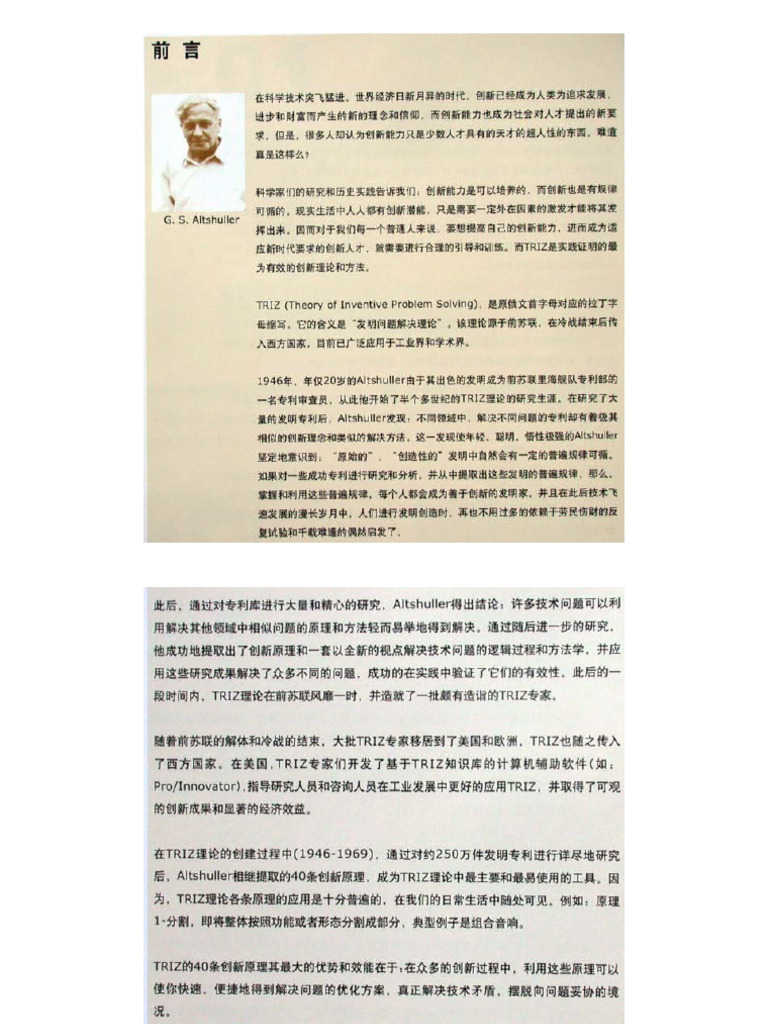 前 言
在科学技术突飞猛进、世界经济日新月异的时代，创新已经成为人类为追求发展、
进步和财富而产生的新的理念和信仰，而创新能力也成为社会对人才提出的新要
求，但是，很多人却认为创新能力只是少数人才具有的天才的超人性的东西，难道
真是这样么？
G. S. Altshuller
科学家们的研究和历史实践告诉我们：创新能力是可以培养的，而创新也是有规律
可循的，现实生活中人人都有创新潜能，只是需要一定外在因素的激发才能将其发
挥出来。因而对于我们每一个普通人来说，要想提高自己的创新能力，进而成为适
应新时代要求的创新人才，就需要进行合理的引导和训练。而TRIZ是实践证明的最
为有效的创新理论和方法。
TRIZ (Theory of Inventive Problem Solving)，是原俄文首字母对应的拉丁字
母缩写。它的含义是“发明问题解决理论”。该理论源于前苏联，在冷战结束后传
入西方国家，目前已广泛应用于工业界和学术界。
1946年，年仅20岁的Altshuller由于其出色的发明成为前苏联里海舰队专利部的
一名专利审查员，从此他开始了半个多世纪的TRIZ理论的研究生涯。在研究了大
量的发明专利后，Altshuller发现：不同领域中，解决不同问题的专利却有着极其
相似的创新理念和类似的解决方法。这一发现使年轻、聪明、悟性极强的Altshuller
坚定地意识到：“原始的”、“创造性的”发明中自然会有一定的普遍规律可循。
如果对一些成功专利进行研究和分析，并从中提取出这些发明的普遍规律，那么，
掌握和利用这些普遍规律，每个人都会成为善于创新的发明家。并且在此后技术飞
速发展的漫长岁月中，人们进行发明创造时，再也不用过多的依赖于劳民伤财的反
复试验和千载难逢的偶然启发了。
此后，通过对专利库进行大量和精心的研究，Altshuller得出结论：许多技术问题可以利
用解决其他领域中相似问题的原理和方法轻而易举地得到解决。通过随后进一步的研究，
他成功地提取出了创新原理和一套以全新的视点解决技术问题的逻辑过程和方法学，并应
用这些研究成果解决了众多不同的问题，成功的在实践中验证了它们的有效性。此后的一
段时间内，TRIZ理论在前苏联风靡一时，并造就了一批颇有造诣的TRIZ专家。
随着前苏联的解体和冷战的结束，大批TRIZ专家移居到了美国和欧洲，TRIZ也随之传入
了西方国家。在美国，TRIZ专家们开发了基于TRIZ知识库的计算机辅助软件(如：
Pro/Innovator)，指导研究人员和咨询人员在工业发展中更好的应用TRIZ，并取得了可观
的创新成果和显著的经济效益。
在TRIZ理论的创建过程中(1946-1969)，通过对约250万件发明专利进行详尽地研究
后，Altshuller相继提取的40条创新原理，成为TRIZ理论中最主要和最易使用的工具。因
为，TRIZ理论各条原理的应用是十分普遍的，在我们的日常生活中随处可见。例如：原理
1-分割，即将整体按照功能或者形态分割成部分，典型例子是组合音响。
TRIZ的40条创新原理其最大的优势和效能在于：在众多的创新过程中，利用这些原理可以
使你快速、便捷地得到解决问题的优化方案，真正解决技术矛盾，摆脱向问题妥协的境
况。